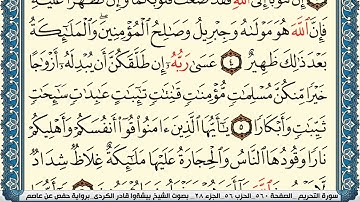 إِن تَتُوبَآ إِلَى ٱللَّهِ فَقَدۡ صَغَتۡ قُلُوبُكُمَاۖ وَإِن تَظَٰهَرَا عَلَيۡهِ
فَإِنَّ ٱللَّهَ هُوَ مَوۡلَىٰهُ وَجِبۡرِيلُ وَصَٰلِحُ ٱلۡمُؤۡمِنِينَۖ وَٱلۡمَلَٰٓئِكَةُ
بَعۡدَ ذَٰلِكَ ظَهِيرٌ ٤ عَسَىٰ رَبُّهُۥٓ إِن طَلَّقَكُنَّ أَن يُبۡدِلَهُۥٓ أَزۡوَٰجًا
خَيۡرٗا مِّنكُنَّ مُسۡلِمَٰتٖ مُّؤۡمِنَٰتٖ قَٰنِتَٰتٖ تَٰٓئِبَٰتٍ عَٰبِدَٰتٖ سَٰٓئِحَٰتٖ
ثَيِّبَٰتٖ وَأَبۡكَارٗا ٥ يَٰٓأَيُّهَا ٱلَّذِينَ ءَامَنُواْ قُوٓاْ أَنفُسَكُمۡ وَأَهۡلِيكُمۡ
نَارٗا وَقُودُهَا ٱلنَّاسُ وَٱلۡحِجَارَةُ عَلَيۡهَا مَلَٰٓئِكَةٌ غِلَاظٞ شِدَادٞ
سورة التحريم _ الصفحة ٥٦٠ _ الحزب ٥٦ _ الجزء ٢٨ _ بصوت الشيخ بيشةوا قادر الكردي برواية حفص عن عاصم